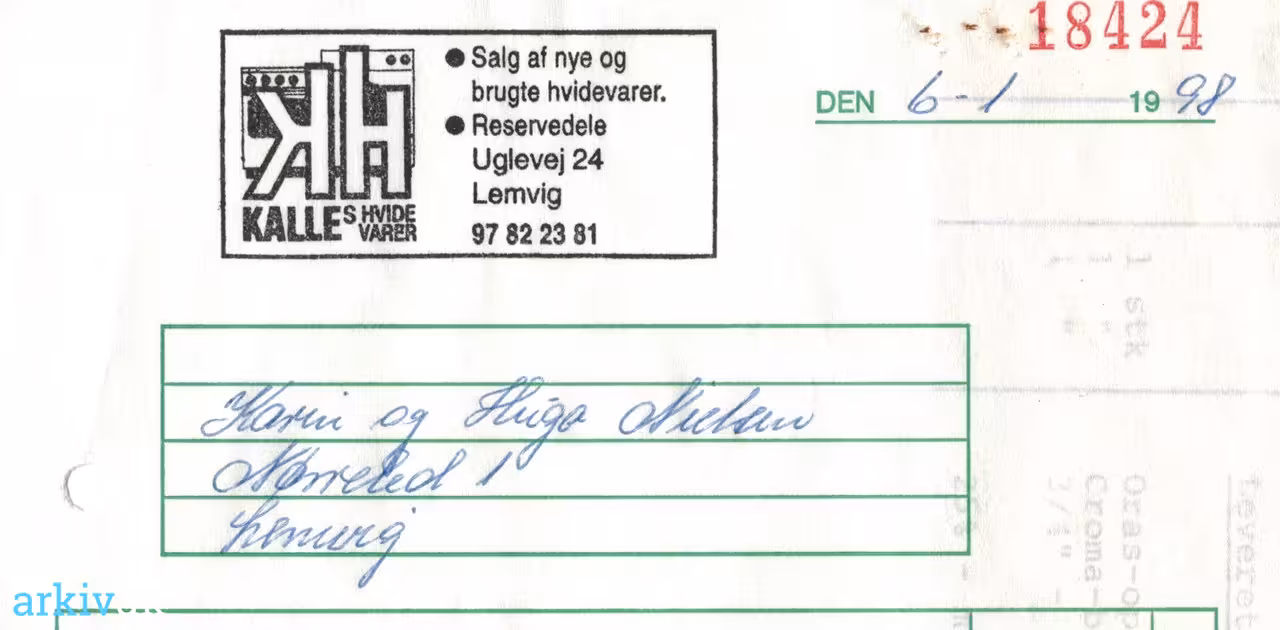 18424
DEN 6-1 1998
KH
KALLEs HVIDE VARER
● Salg af nye og
brugte hvidevarer.
● Reservedele
Uglevej 24
Lemvig
97 82 23 81
Karin og Hugo Nielsen
Nørreled 1
Lemvig
1 stk
1 "
1 "
Oras-op
Croma-b
3/4" -
leveret
arkiv.dk